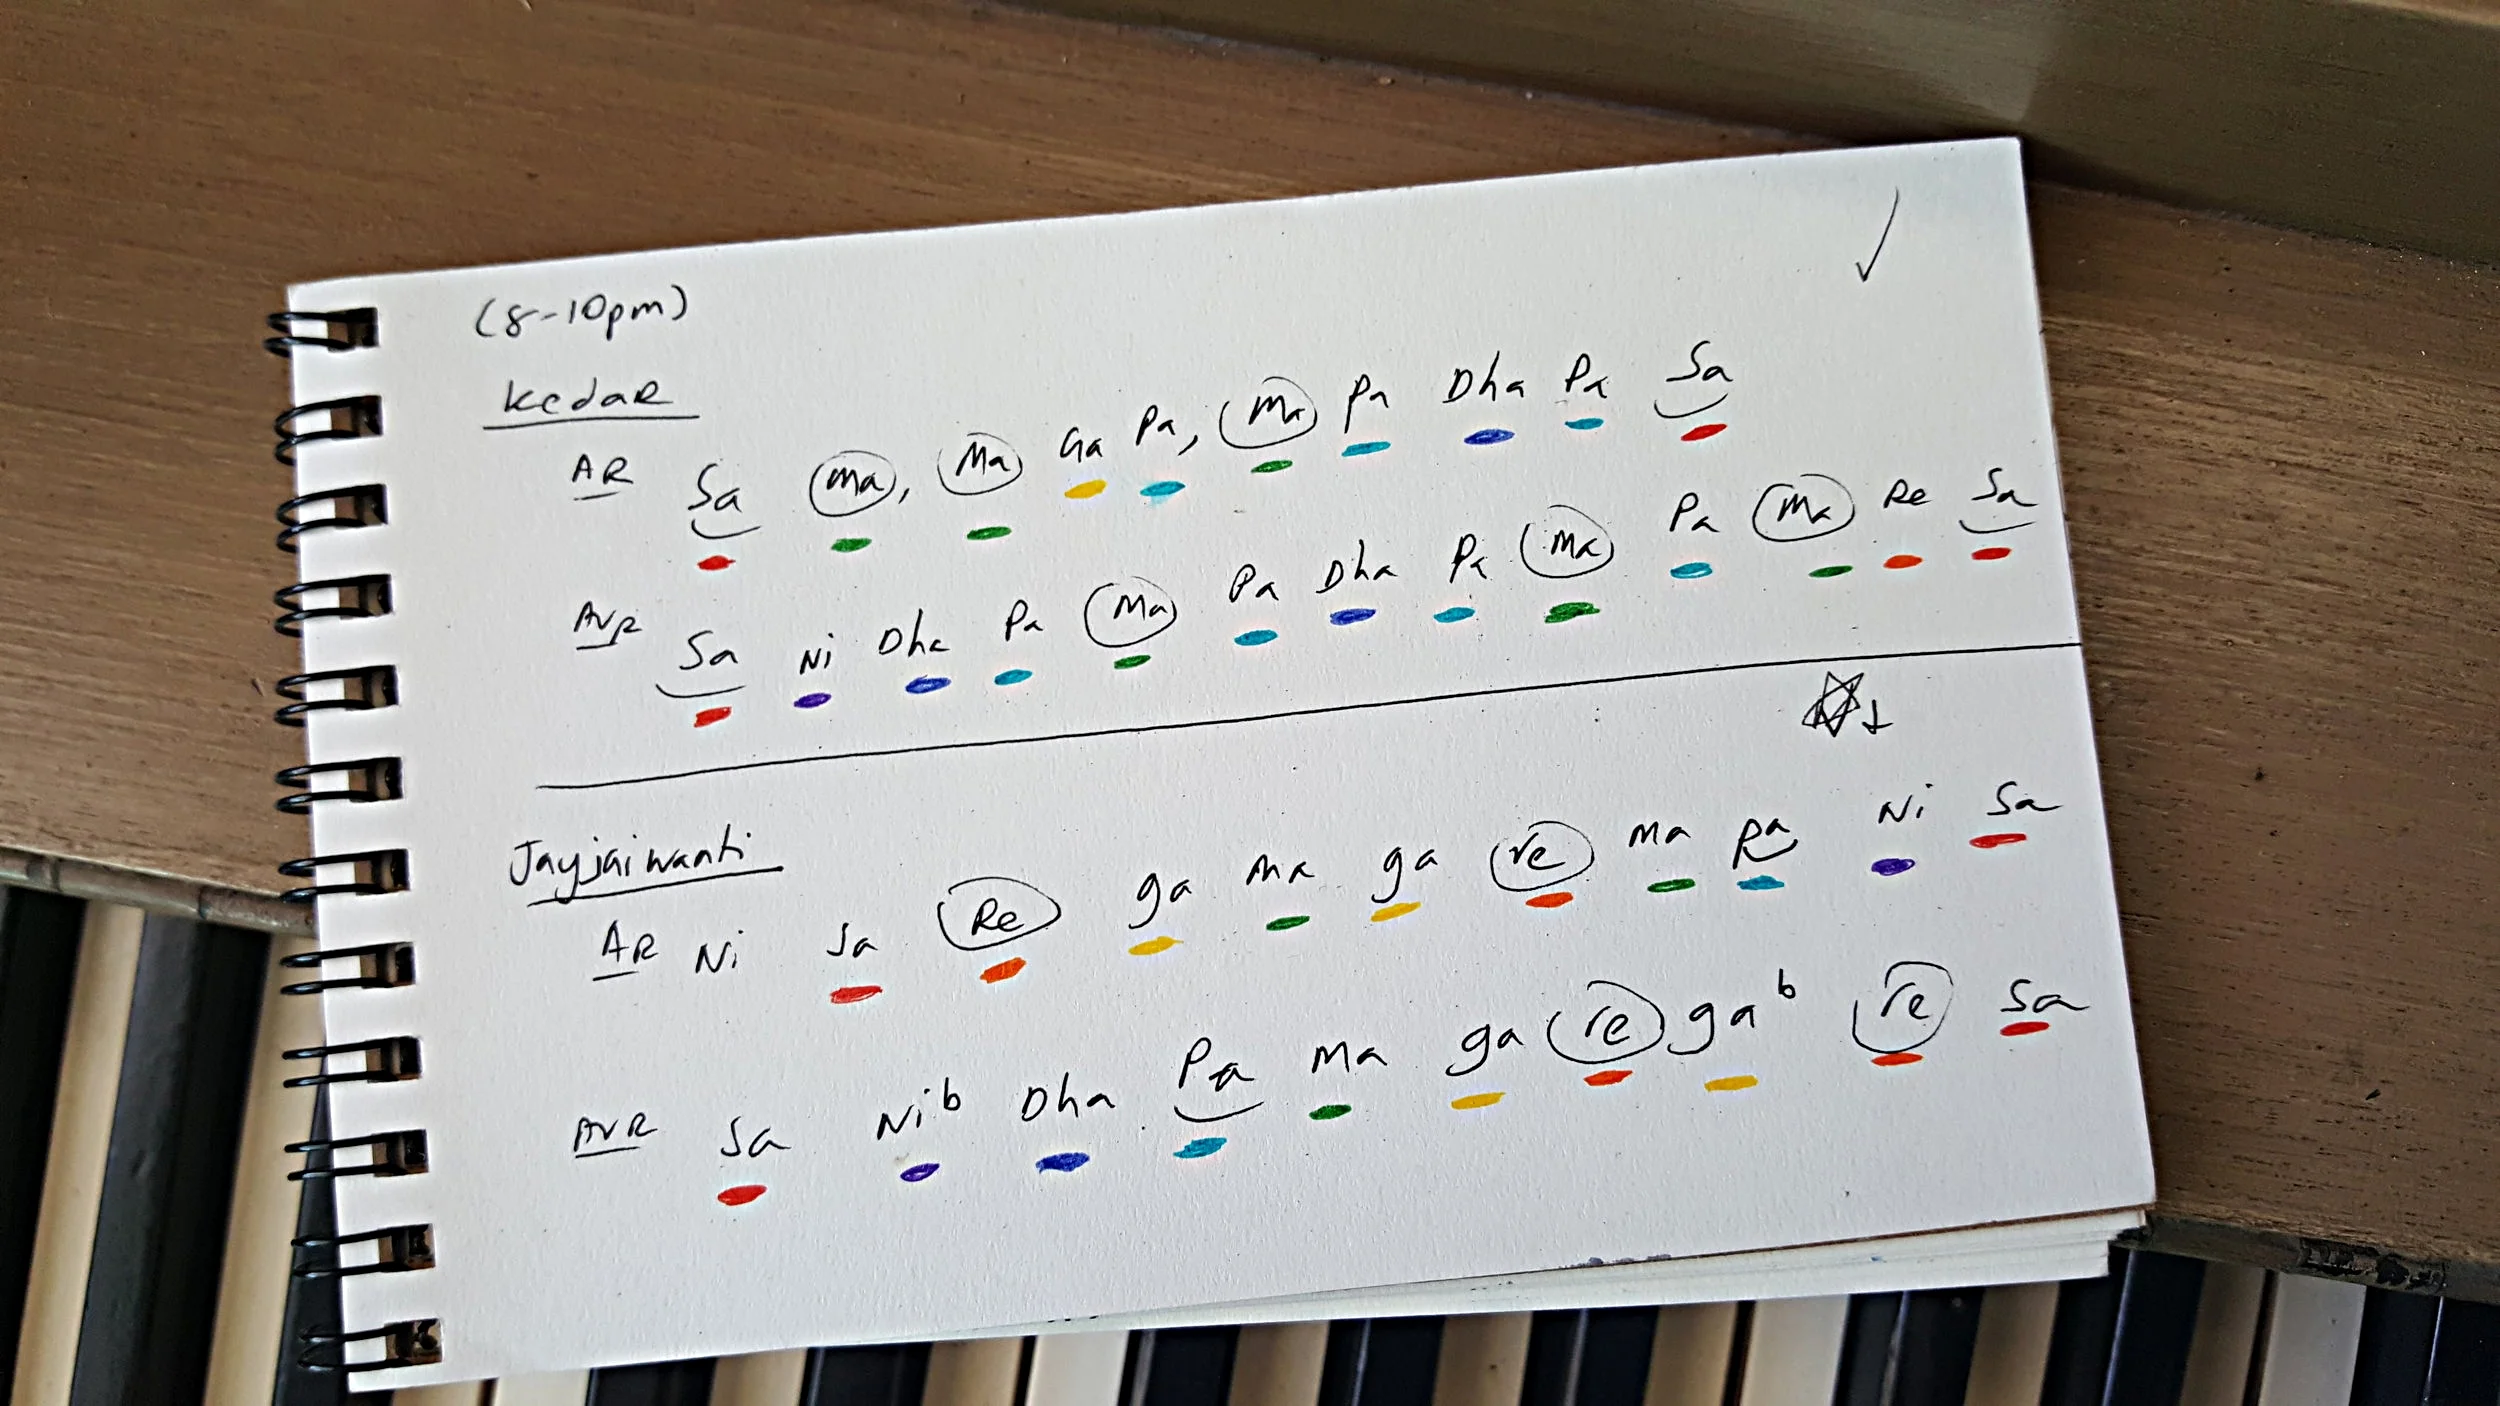 (8-10pm)
Kedar
AR Sa Ma, Ma Ga Pa, Ma Pa Dha Pa Sa
AVR Sa Ni Dha Pa Ma Pa Dha Pa Ma Pa Ma Re Sa
Jayjaiwanti
AR Ni Sa Re ga Ma ga re Ma Pa Ni Sa
AVR Sa Ni b Dha Pa Ma ga re ga b re Sa